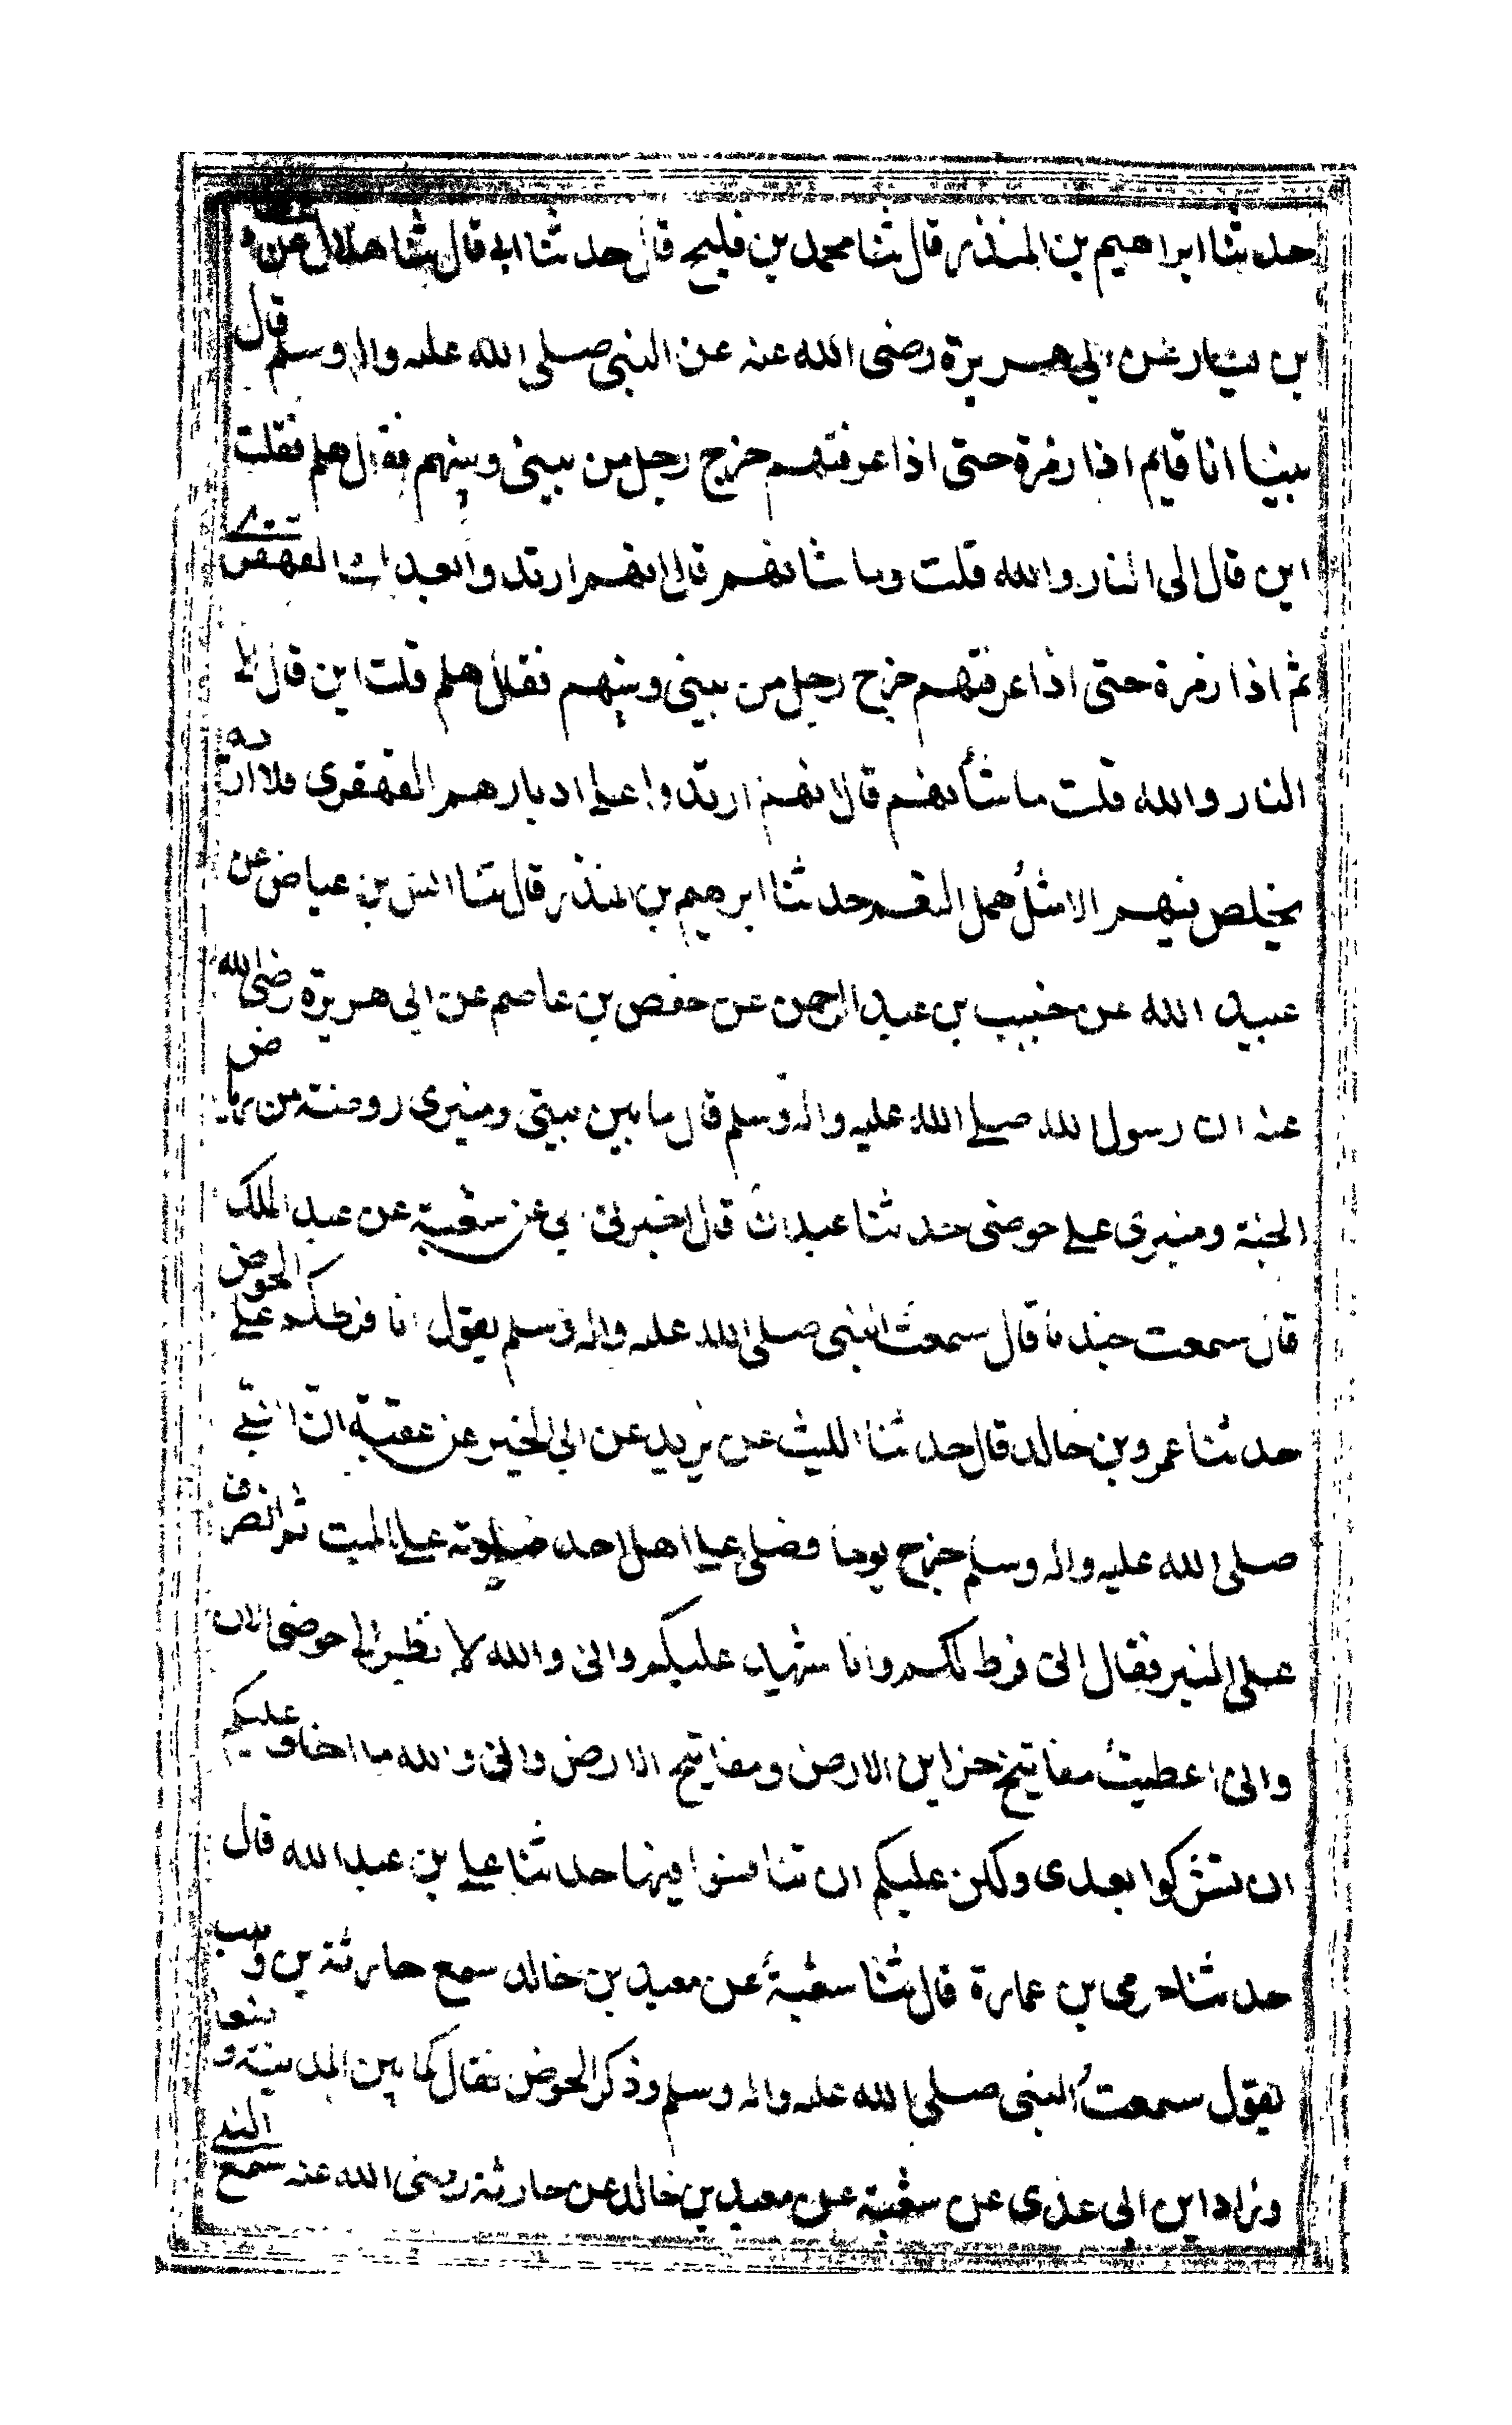 حدثنا ابراهيم بن المنذر قال ثنا محمد بن فليح قال حدثنا ابي قال ثنا هلال عن و
بن يسار عن ابي هريرة رضى الله عنه عن النبى صلى الله عليه واله وسلم قال
بينا انا قايم اذا زمرة حتى اذا عرفتهم خرج رجل من بينى وبينهم فقال هلم فقلت
اين قال الى النار والله قلت وما شانهم قال انهم ارتدوا بعدك القهقرى
ثم اذا زمرة حتى اذا عرفتهم خرج رجل من بينى وبينهم فقال هلم قلت اين قال الى
النار والله قلت ما شأنهم قال انهم ارتدوا على ادبارهم القهقرى فلا اراه
يخلص منهم الا مثل همل النعم حدثنا ابرهيم بن المنذر قال ثنا انس بن عياض عن
عبيد الله عن خبيب بن عبد الرحمن عن حفص بن عاصم عن ابي هريرة رضى الله
عنه ان رسول الله صلى الله عليه واله وسلم قال ما بين بيتى ومنبرى روضة من رياض
الجنة ومنبرى على حوضى حدثنا عبدان قال اخبرنى ابي عن شعبة عن عبد الملك
قال سمعت جندبا قال سمعت النبى صلى الله عليه واله وسلم يقول انا فرطكم على الحوض
حدثنا عمرو بن خالد قال حدثنا الليث عن يزيد عن ابي الخير عن عقبة ان النبى
صلى الله عليه واله وسلم خرج يوما فصلى على اهل احد صلوته على الميت ثم انصرف
على المنبر فقال انى فرط لكم وانا شهيد عليكم وانى والله لا نظر الى حوضى الان
وانى اعطيت مفاتيح خزاين الارض ومفاتيح الارض وانى والله ما اخاف عليكم
ان تشركوا بعدى ولكن عليكم ان تنافسوا فيها حدثنا على بن عبد الله قال
حدثنا حرمى بن عمارة قال ثنا شعبة عن معبد بن خالد سمع حارثة بن وهب
يقول سمعت النبى صلى الله عليه واله وسلم وذكر الحوض فقال كما بين المدينة وصنعا
وزاد ابن ابى عدى عن شعبة عن معبد بن خالد عن حارثة رضى الله عنه سمع النبى